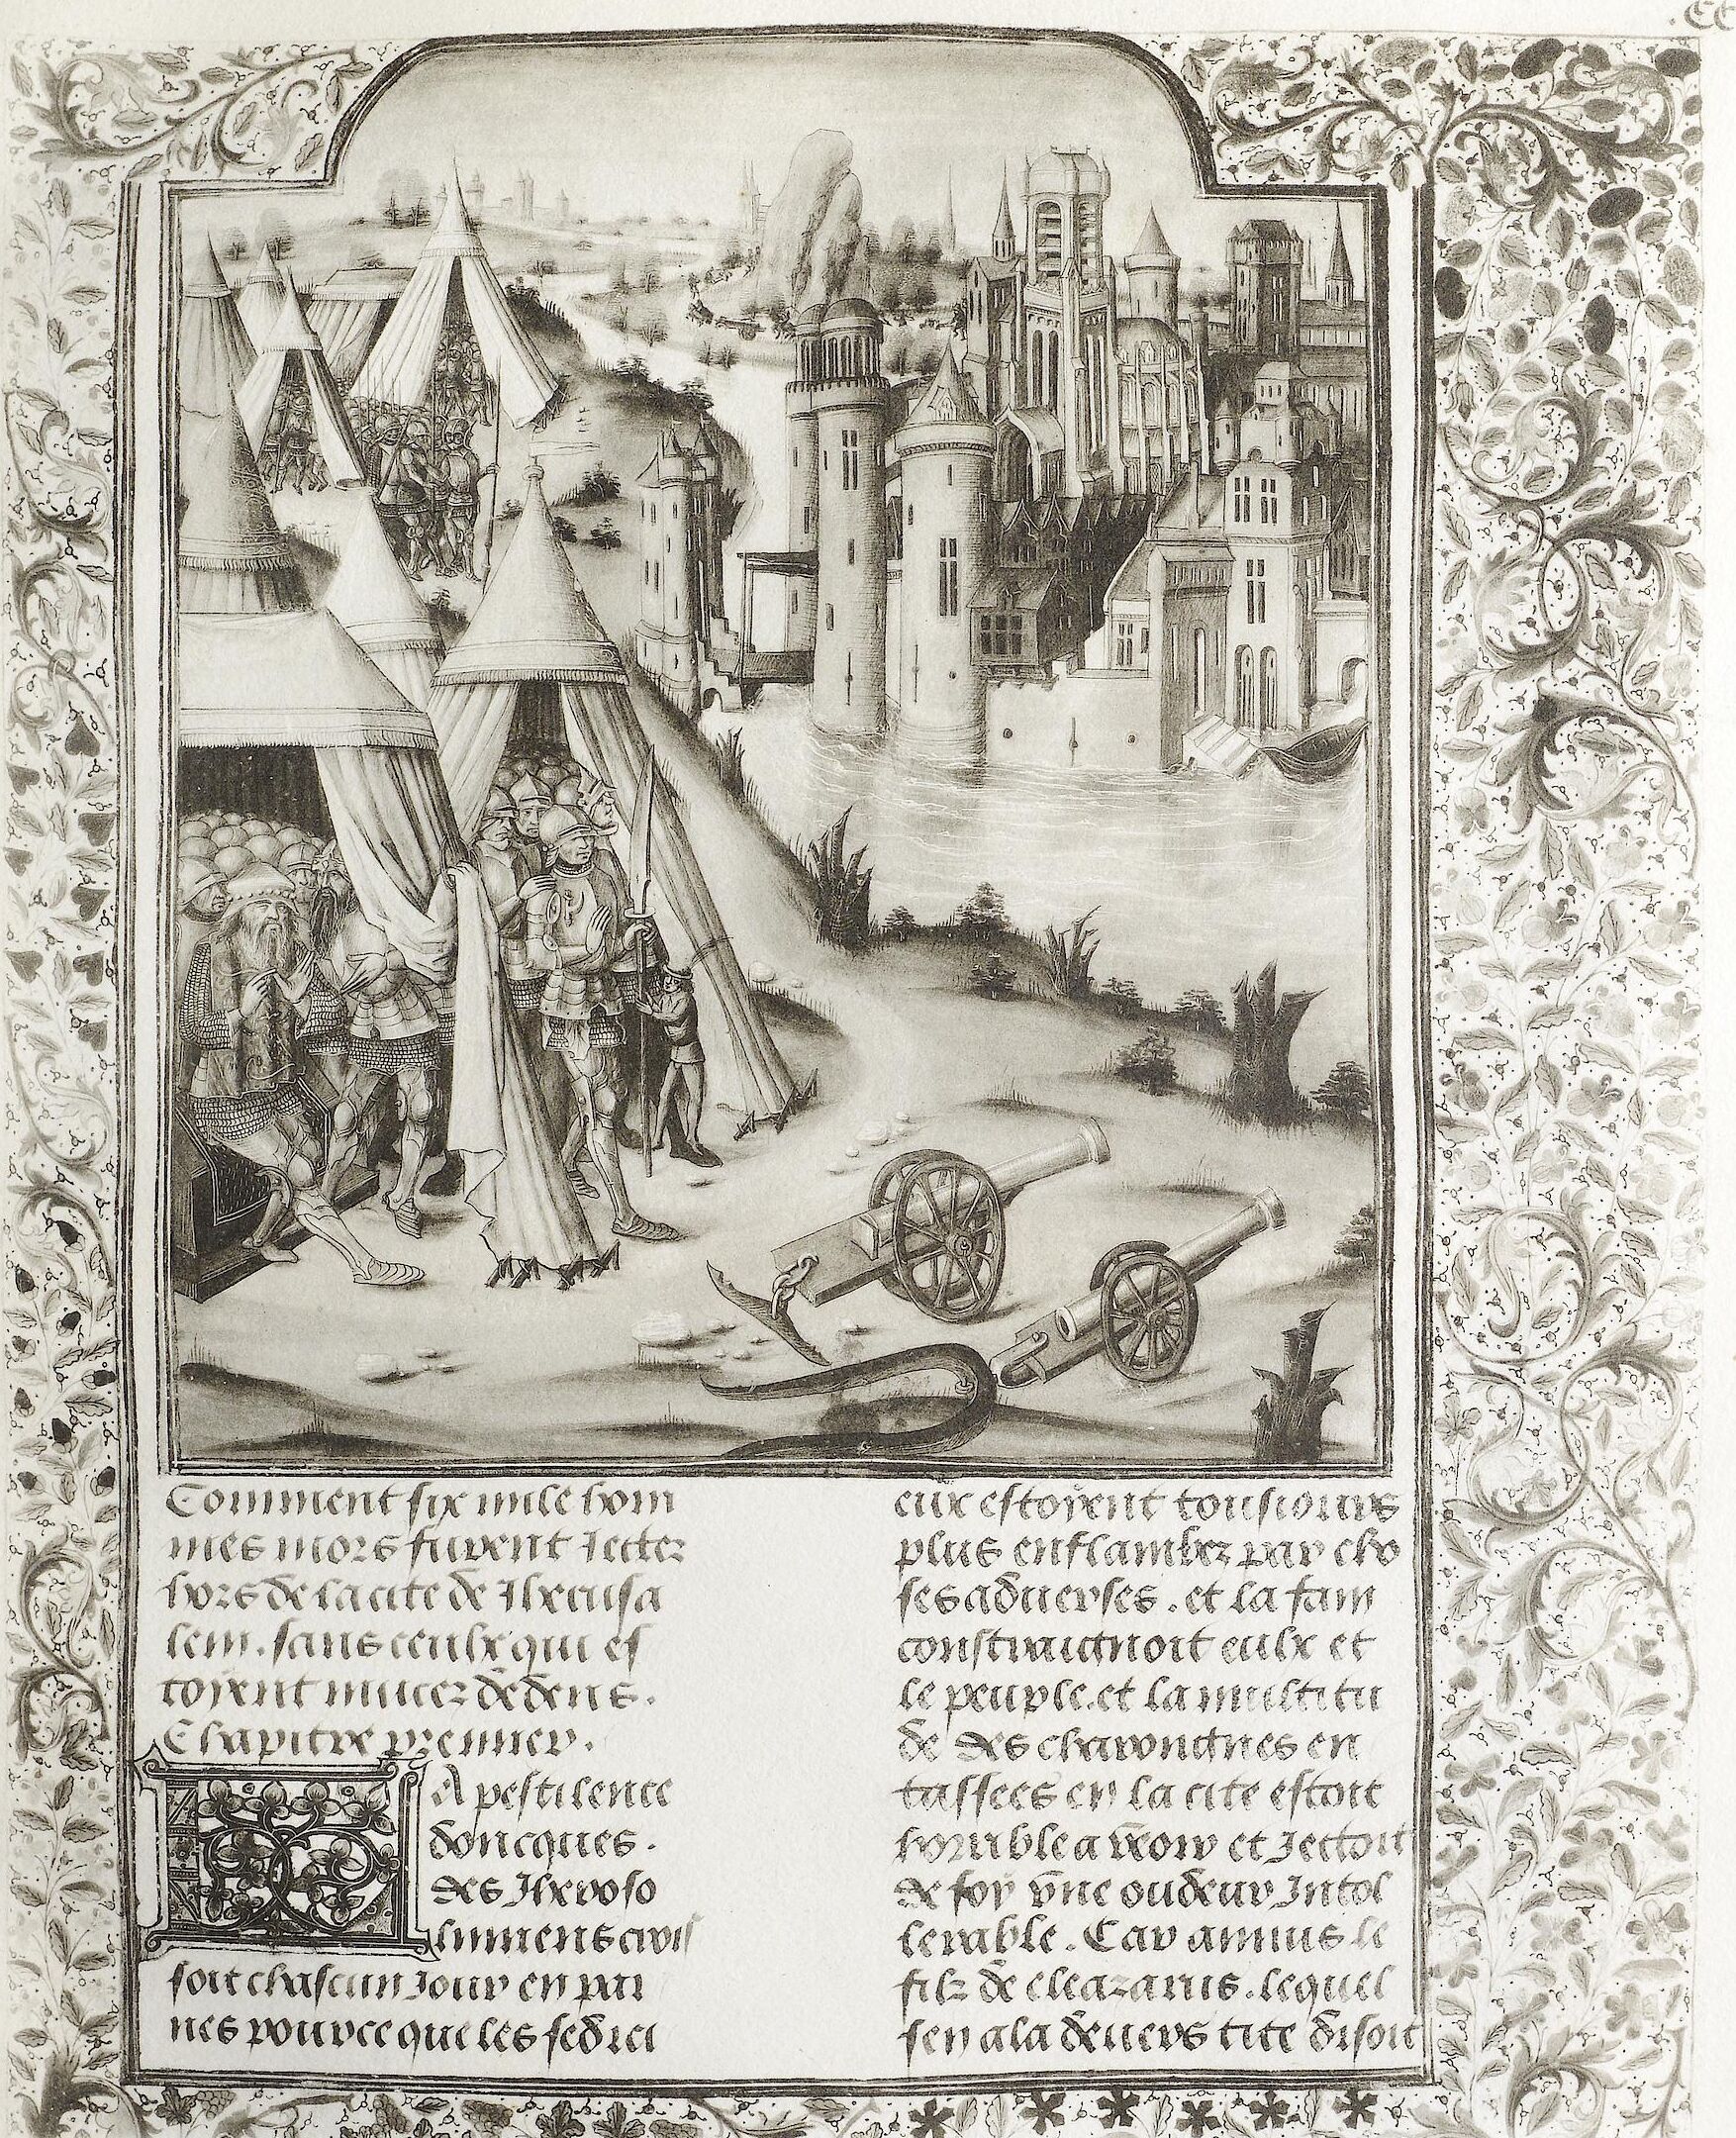 .CC
Comment six mile hom
mes mors furent Jectez
hors de la cite de Jherusa
lem. sans ceulx qui es
toyent mucez dedens.
Chapitre premier.
A pestilence
doncques.
des Jheroso
limiens crois
soit chascun Jour en pai
nes pource que les sedici
eux estoyent tousiours
plus enflambez par cho
ses aduerses. et la fam
constraignoit eulx et
le peuple. et la multitu
de des charoingnes en
tassees en la cite estoit
horrible a veoir et Jectoit
de soy vne oudeur Intol
lerable. Car anuus le
filz de eleazarus. lequel
sen ala deuers tite disoit